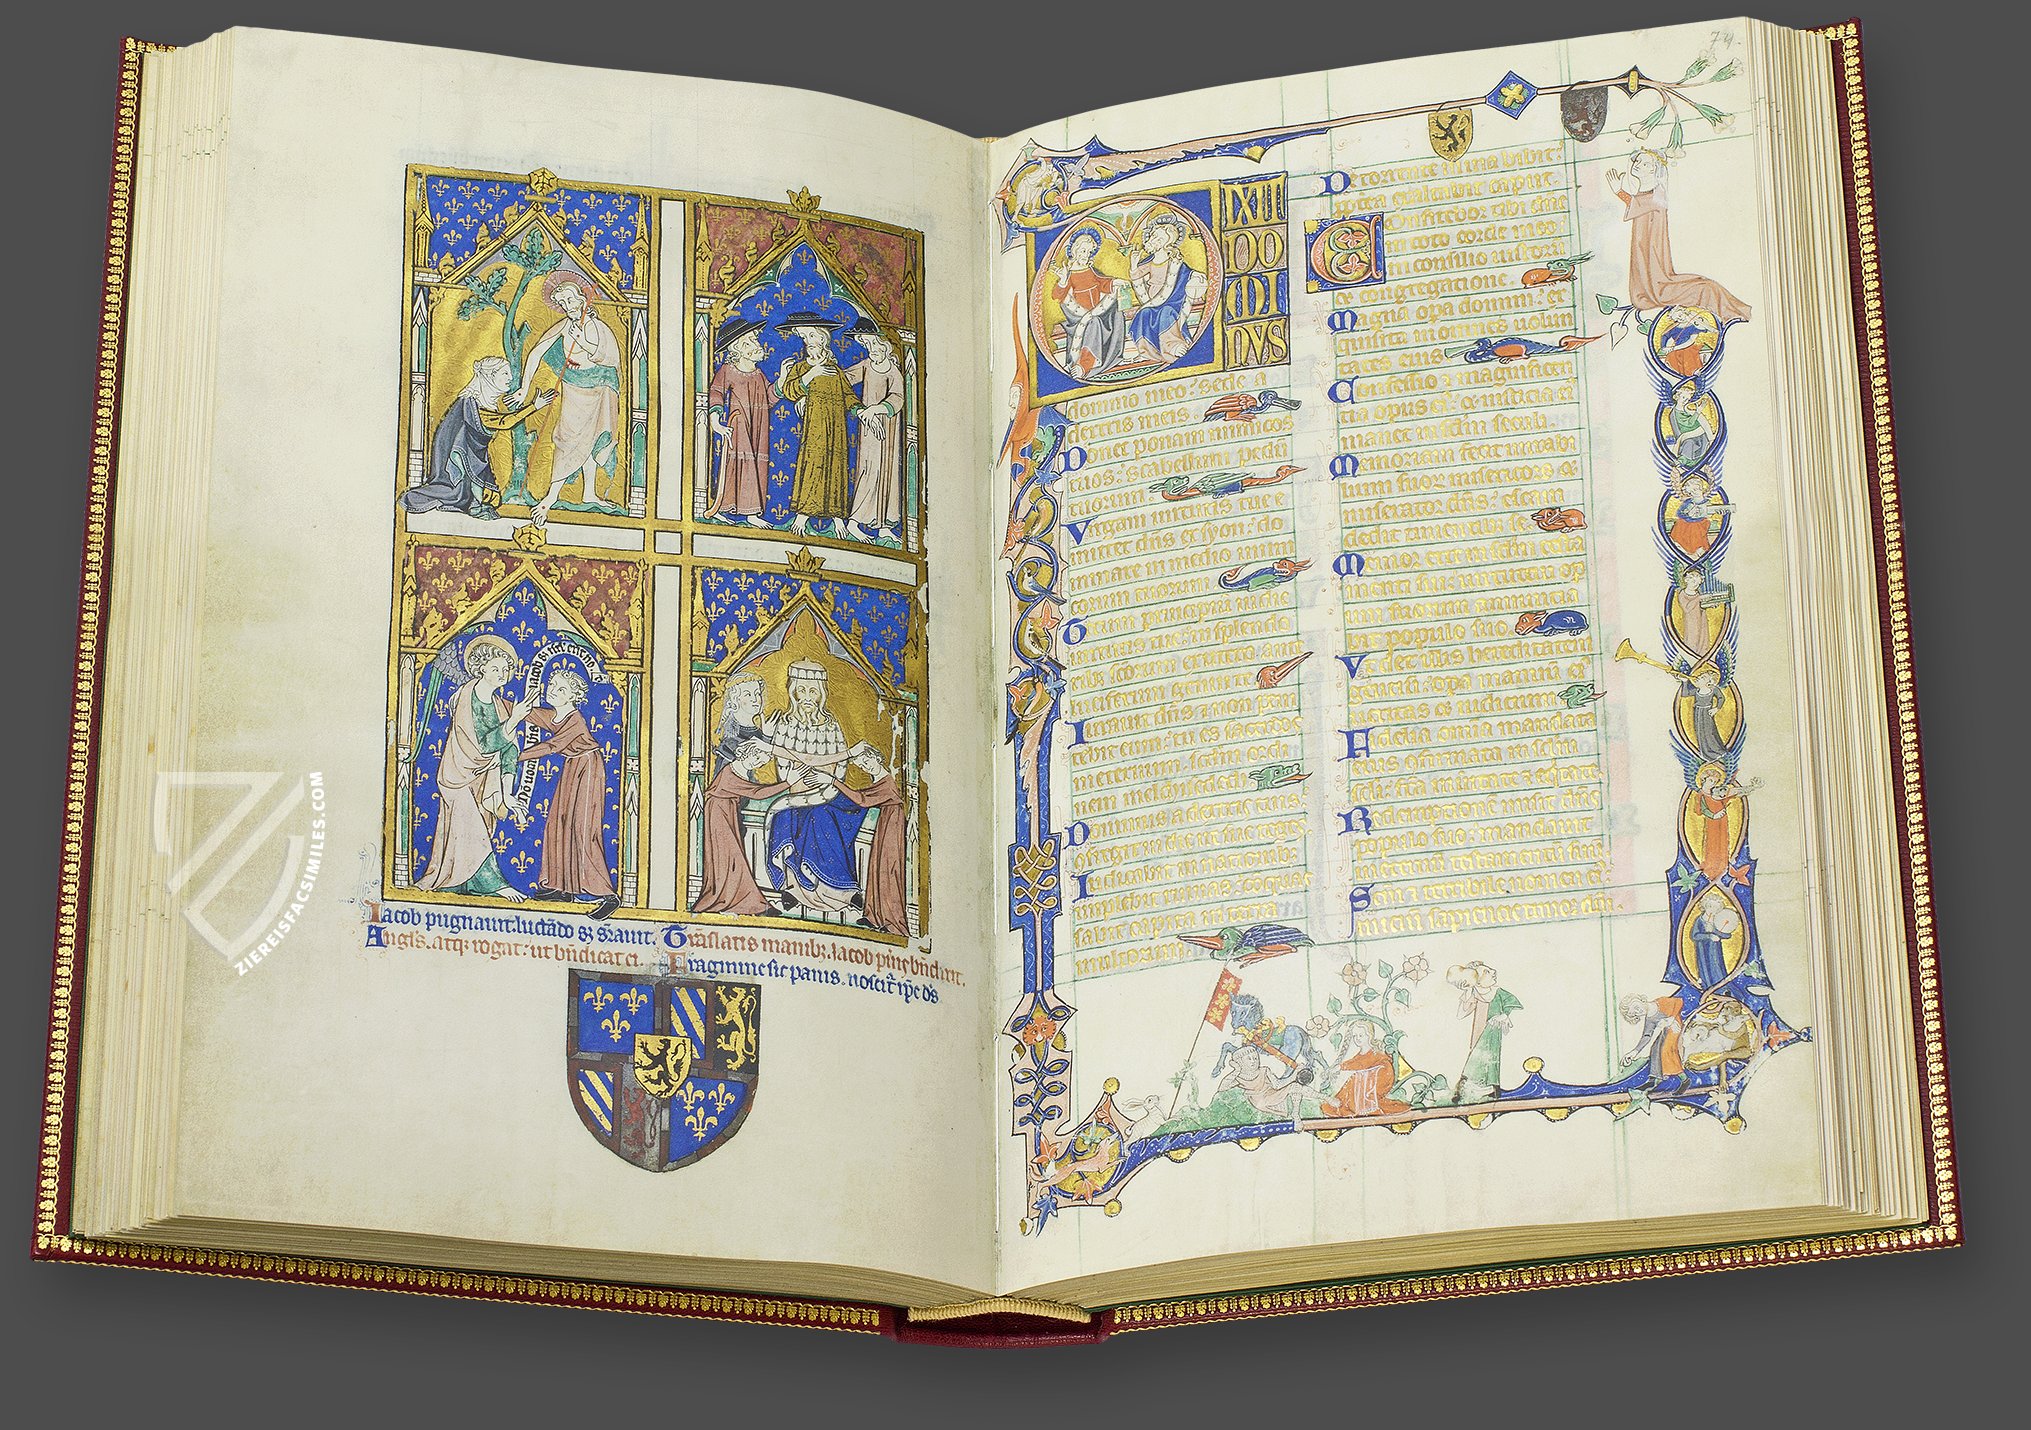 Iacob pugnauit. luctādo
Angl's. atqz rogat: ut bn̄dicat ei.
Trāslatis manibz. Iacob
Fragmine sic panis. noscit̄
74.
DIXIT
DO
MI
NVS
domino meo: sede a
dextris meis.
Donec ponam inimicos
tuos: scabellum pedū
tuorum.
Virgam uirtutis tue e
mittet dn̄s ex syon: do
minare in medio inimi
corum tuorum.
Tecum principiū in die
uirtutis tue in splendo
ribz scōrum ex utero ante
luciferum genui te.
Iurauit dn̄s & non peni
tebit eum: tu es sacerdos
in eternum. scdm ordi
nem melchisedech.
Dominus a dextris tuis:
confregit in die ire sue reges.
Iudicabit in nationibz
implebit ruinas: conquas
sabit capita in terra
multorum.
De torrente in uia bibit:
ptea exaltauit caput.
Confitebor tibi dn̄e
in toto corde meo:
in consilio iustorū
& congregatione.
Magna opa domini: ex
quisita in omnes uolun
tates eius.
Confessio & magnificen
tia opus ei': & iusticia ei'
manet in sclm scli.
Memoriam fecit mirabi
lium suor' misericors &
miserator dn̄s: escam
dedit timentibz se.
Memor erit in sclm testa
menti sui: uirtutem op
um suorum annuncia
bit populo suo.
Vt det illis hereditatem
gentiū: opa manuū ei'
ueritas & iudicium.
Fidelia omia mandata
eius ofirmata in sclm
scli: fca in ueritate & equitate.
Redemptionē misit dn̄s
populo suo: mandauit
in eternū testamentū suū.
Scm & terribile nomen ei':
iniciū sapiencie timor dn̄i.
ZIEREISFACSIMILES.COM